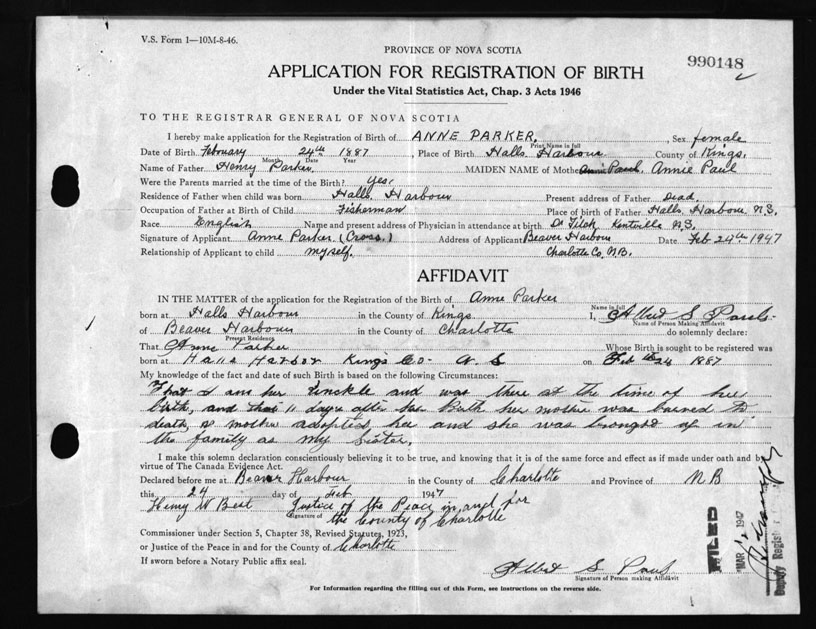 V.S. Form 1—10M-8-46.
PROVINCE OF NOVA SCOTIA
990148
APPLICATION FOR REGISTRATION OF BIRTH
Under the Vital Statistics Act, Chap. 3 Acts 1946
TO THE REGISTRAR GENERAL OF NOVA SCOTIA
I hereby make application for the Registration of Birth of ANNE PARKER, Sex female
Print Name in full
Date of Birth February 24th 1887, Place of Birth Halls Harbour County of Kings,
Month Date Year
Name of Father Henry Parker, MAIDEN NAME of Mother Annie Paul, Annie Paul
Were the Parents married at the time of the Birth? Yes,
Residence of Father when child was born Halls Harbour Present address of Father Dead,
Occupation of Father at Birth of Child Fisherman Place of birth of Father Halls Harbour N.S.
Race English Name and present address of Physician in attendance at birth Kentville N.S.
Signature of Applicant Anne Parker (Cross.) Address of Applicant Beaver Harbour Date Feb 24th 1947
Relationship of Applicant to child myself. Charlotte Co, N.B.
AFFIDAVIT
IN THE MATTER of the application for the Registration of the Birth of Anne Parker
Name in full
born at Halls Harbour in the County of Kings I, Albert S Paul
Name of Person Making Affidavit
of Beaver Harbour in the County of Charlotte do solemnly declare:
Present Residence
That Anne Parker Whose Birth is sought to be registered was
born at Halls Harbor Kings Co- N S on Feb 24 1887
My knowledge of the fact and date of such Birth is based on the following Circumstances:
That I am her Unckle and was there at the time of her
birth, and that 11 days after her Birth her mother was burned to
death, mother adopted her and she was brought up in
the family as my Sister.
I make this solemn declare conscientiously believing it to be true, and knowing that it is of the same force and effect as if made under oath and by
virtue of The Canada Evidence Act.
Declared before me at Beaver Harbour in the County of Charlotte and Province of N B
this 24 day of Feb 1947
Henry W Best Justice of the Peace in and for
Signature of
the County of Charlotte
Commissioner under Section 5, Chapter 38, Revised Statutes, 1923,
or Justice of the Peace in and for the County of Charlotte
If sworn before a Notary Public affix seal.
Albert S Paul
Signature of Person making Affidavit
For Information regarding the filling out of this Form, see Instructions on the reverse side.
FILED
MAR 1947
Deputy Registrar